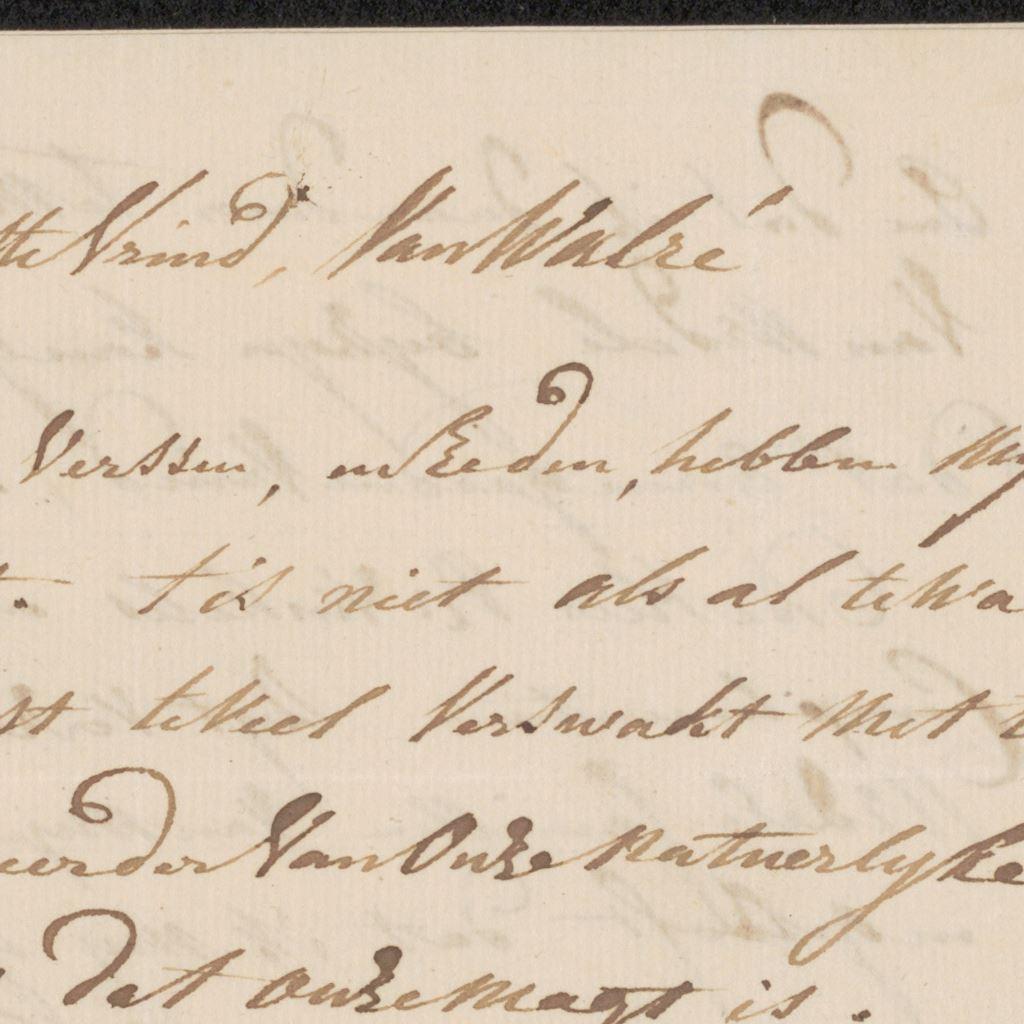 Vrind, Van Walré
Verssen, en Reeden, hebben My
t is niet als al te Wa
te Veel Verswakt Met
Van Onze natuerlyke
dat onze magt is.